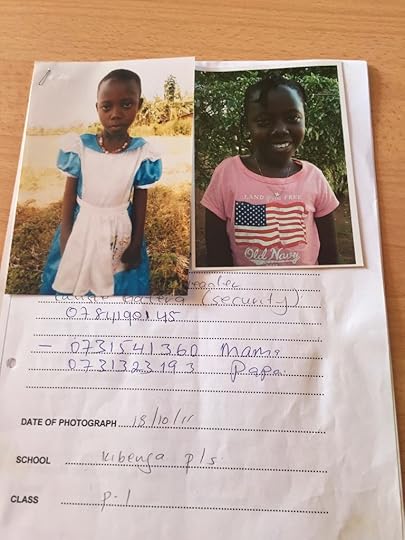 LAND OF FREE
Old Navy
(security)
0784190145
- 0731541360 Mama
0731323193 Papa
DATE OF PHOTOGRAPH 18/10/11
SCHOOL Kibenga p/s
CLASS p.1